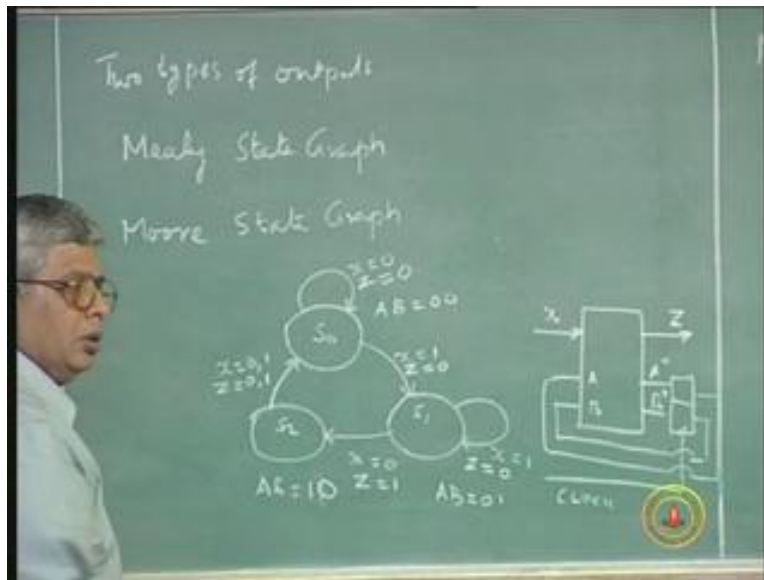 Two types of outputs
Mealy State Graph
Moore State Graph
x=0
z=0
AB=00
S0
x=0,1
z=0,1
x=1
z=0
S2
S1
x=0
z=1
x=1
z=0
AB=10
AB=01
x
Z
A
A+
B
B+
CLOCK